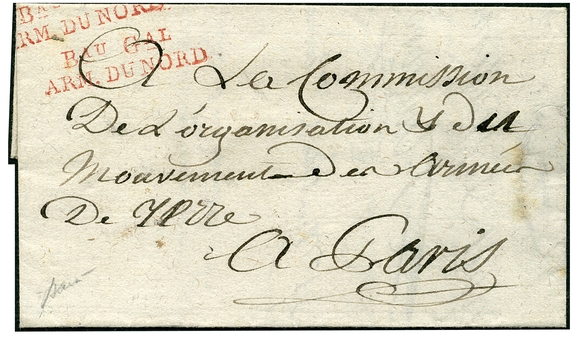 BAU GAL
ARM. DU NORD.
BAU GAL
ARM. DU NORD.
A La Commission
De L'organisation & du
Mouvement des Armées
De Terre
A Paris